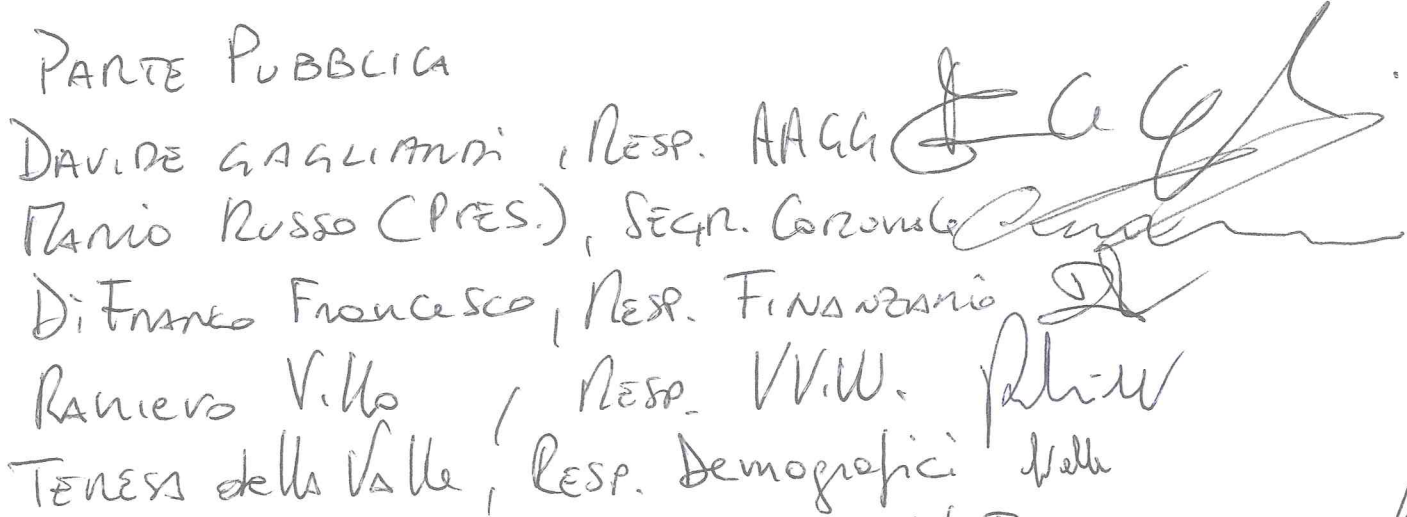 PARTE PUBBLICA
DAVIDE GAGLIARDI, RESP. AAGG
MARIO RUSSO (PRES.), SEGR. COMUNALE
Di FRANCO FRANCESCO, RESP. FINANZIARIO
RANIERO Villa, RESP. VV.UU.
TERESA della Valle, RESP. Demografici